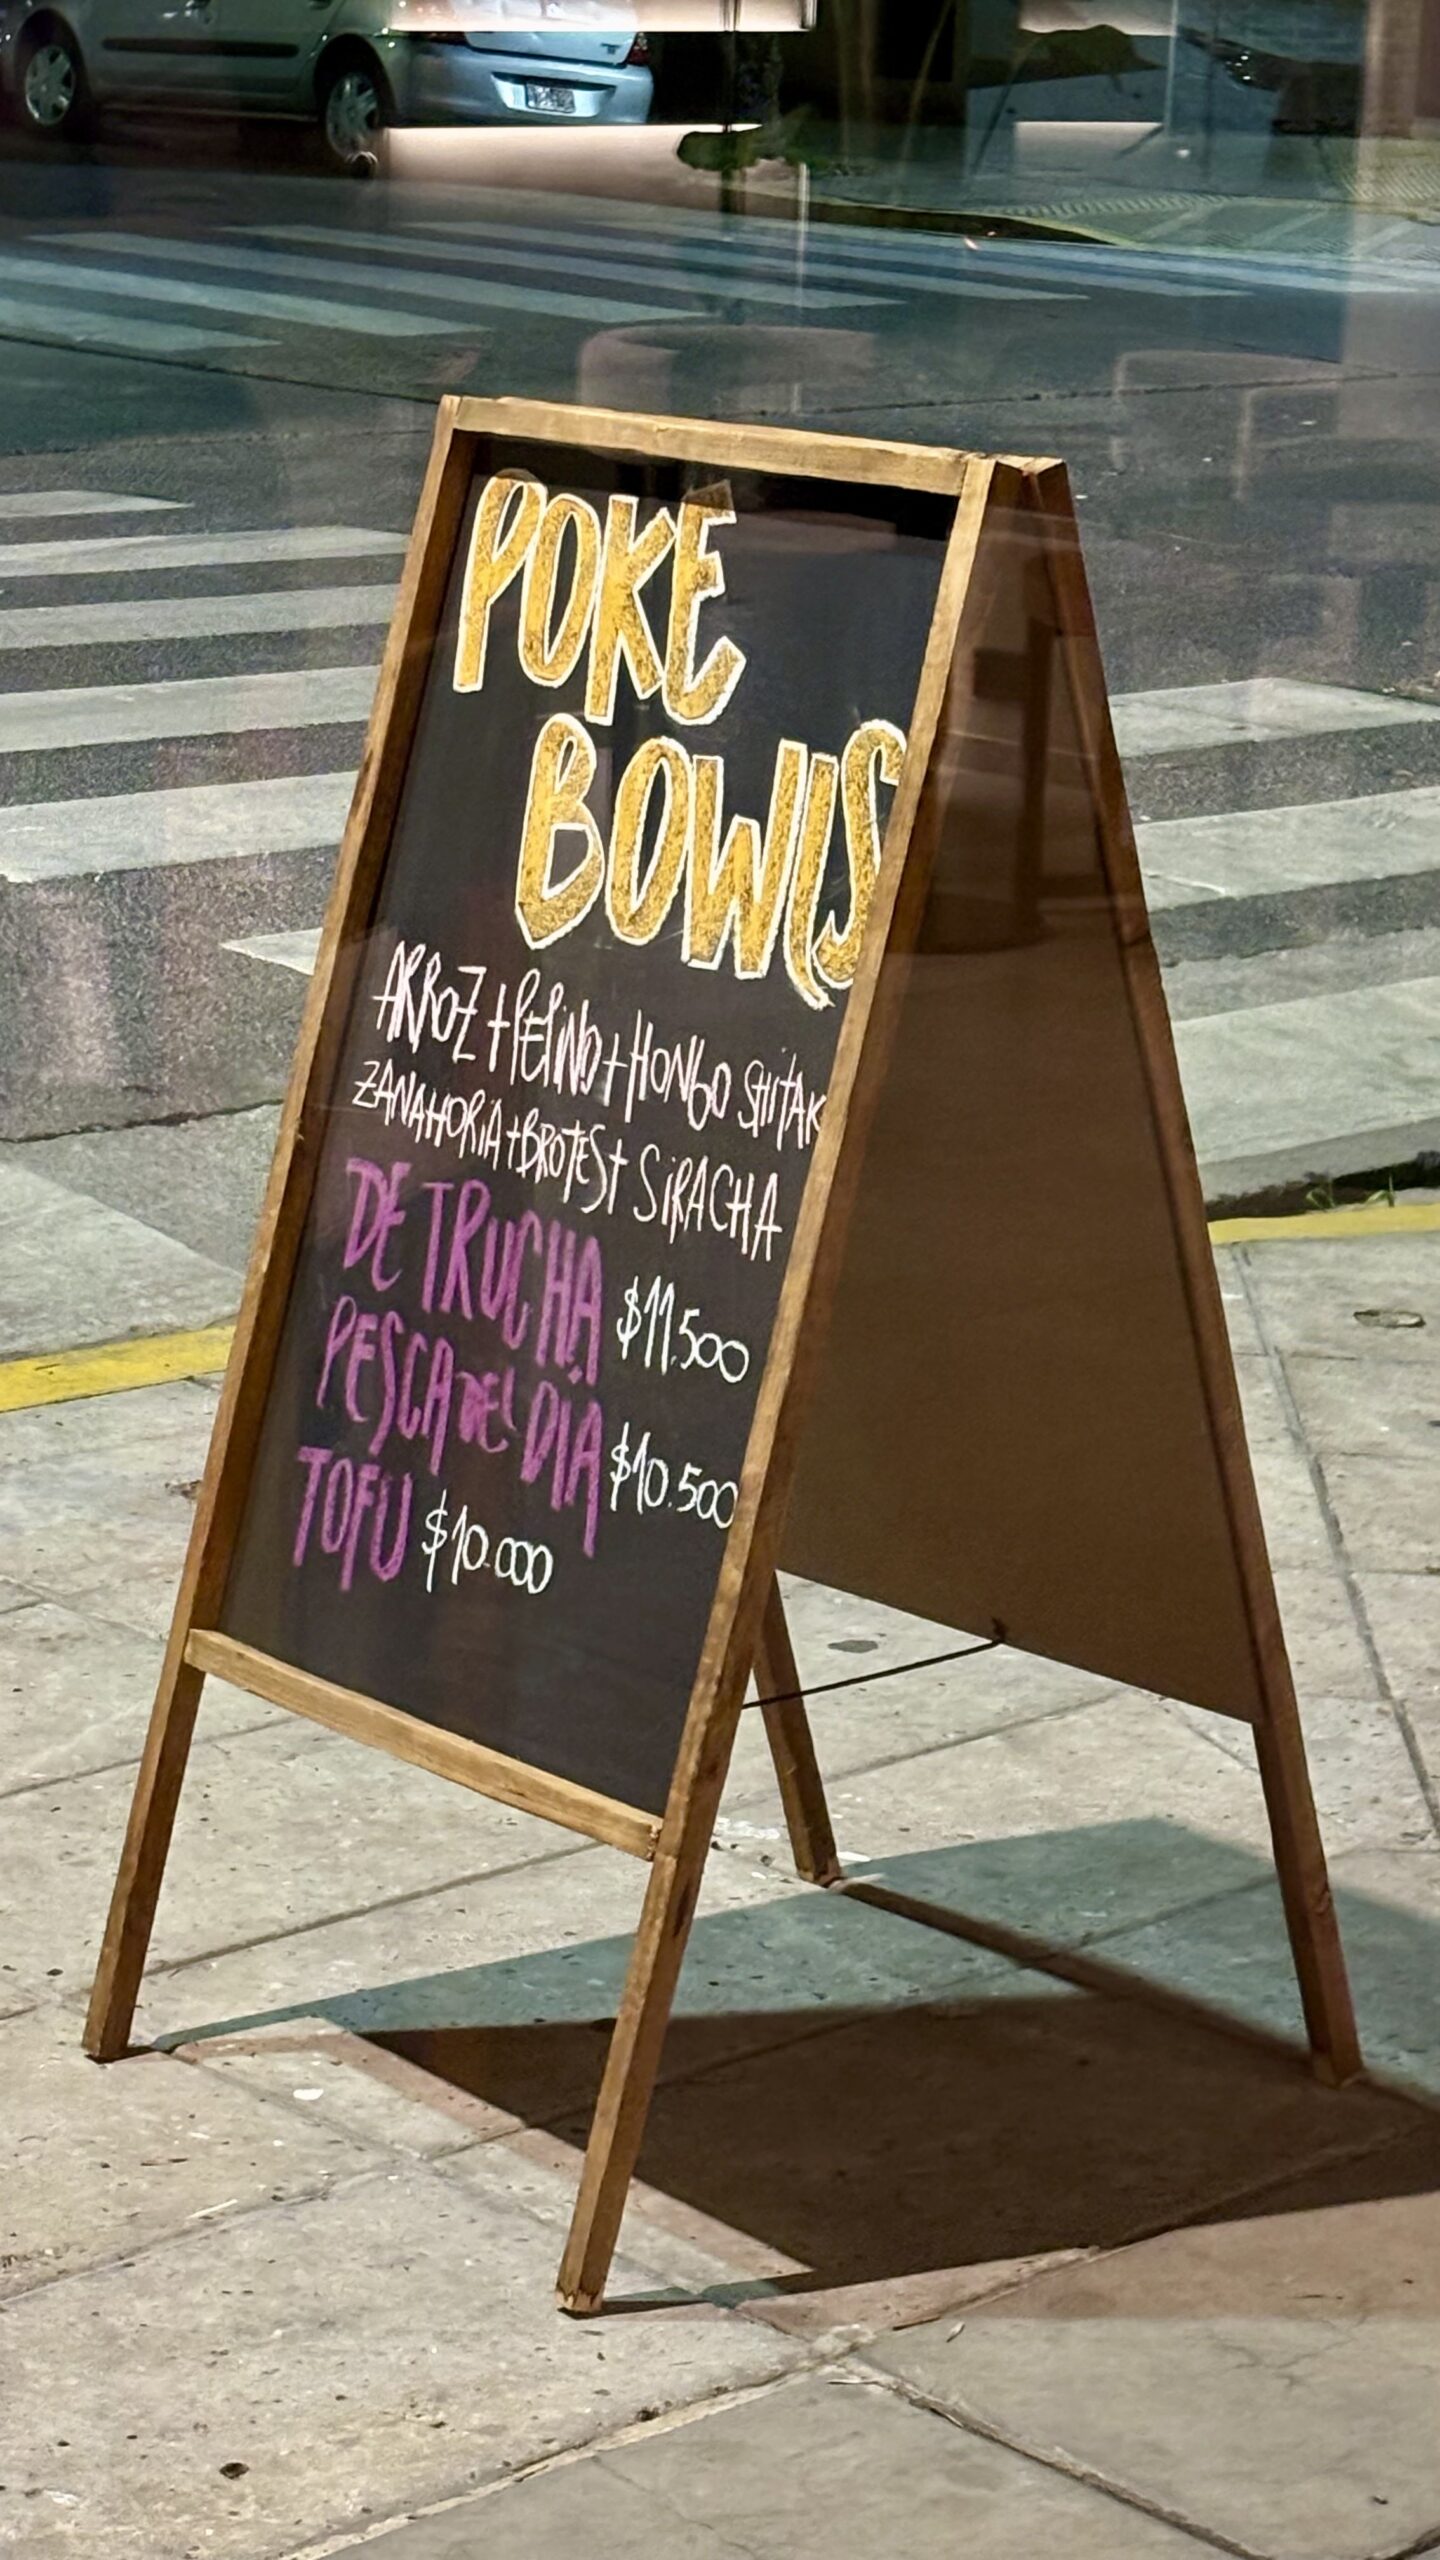 POKE
BOWLS
ARROZ + PEPINO + HONGO SHITAK
ZANAHORIA + BROTES + SIRACHA
DE TRUCHA $11.500
PESCA DEL DÍA $10.500
TOFU $10.000